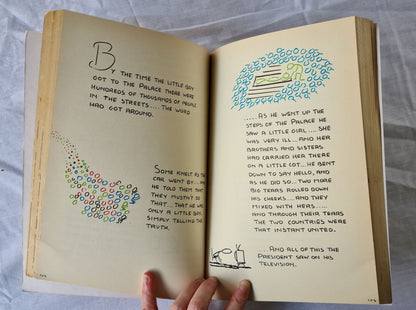 BY THE TIME THE LITTLE BOY
GOT TO THE PALACE THERE WERE
HUNDREDS OF THOUSANDS OF PEOPLE
IN THE STREETS.... THE WORD
HAD GOT AROUND.
SOME KNELT AS THE
CAR WENT BY...
HE TOLD THEM THAT
THEY MUSTN'T DO
THAT... THAT HE WAS
ONLY A LITTLE BOY
SIMPLY TELLING THE
TRUTH.
.....AS HE WENT UP THE
STEPS OF THE PALACE HE
SAW A LITTLE GIRL..... SHE
WAS VERY ILL...AND HER
BROTHERS AND SISTERS
HAD CARRIED HER THERE
ON A LITTLE COT...HE BENT
DOWN TO SAY HELLO, AND
AS HE DID SO... TWO MORE
BIG TEARS ROLLED DOWN
HIS CHEEKS....AND THEY
MIXED WITH HERS.....
AND THROUGH THEIR TEARS
THE TWO COUNTRIES WERE
THAT INSTANT UNITED.
....AND ALL OF THIS THE
PRESIDENT SAW ON HIS
TELEVISION.